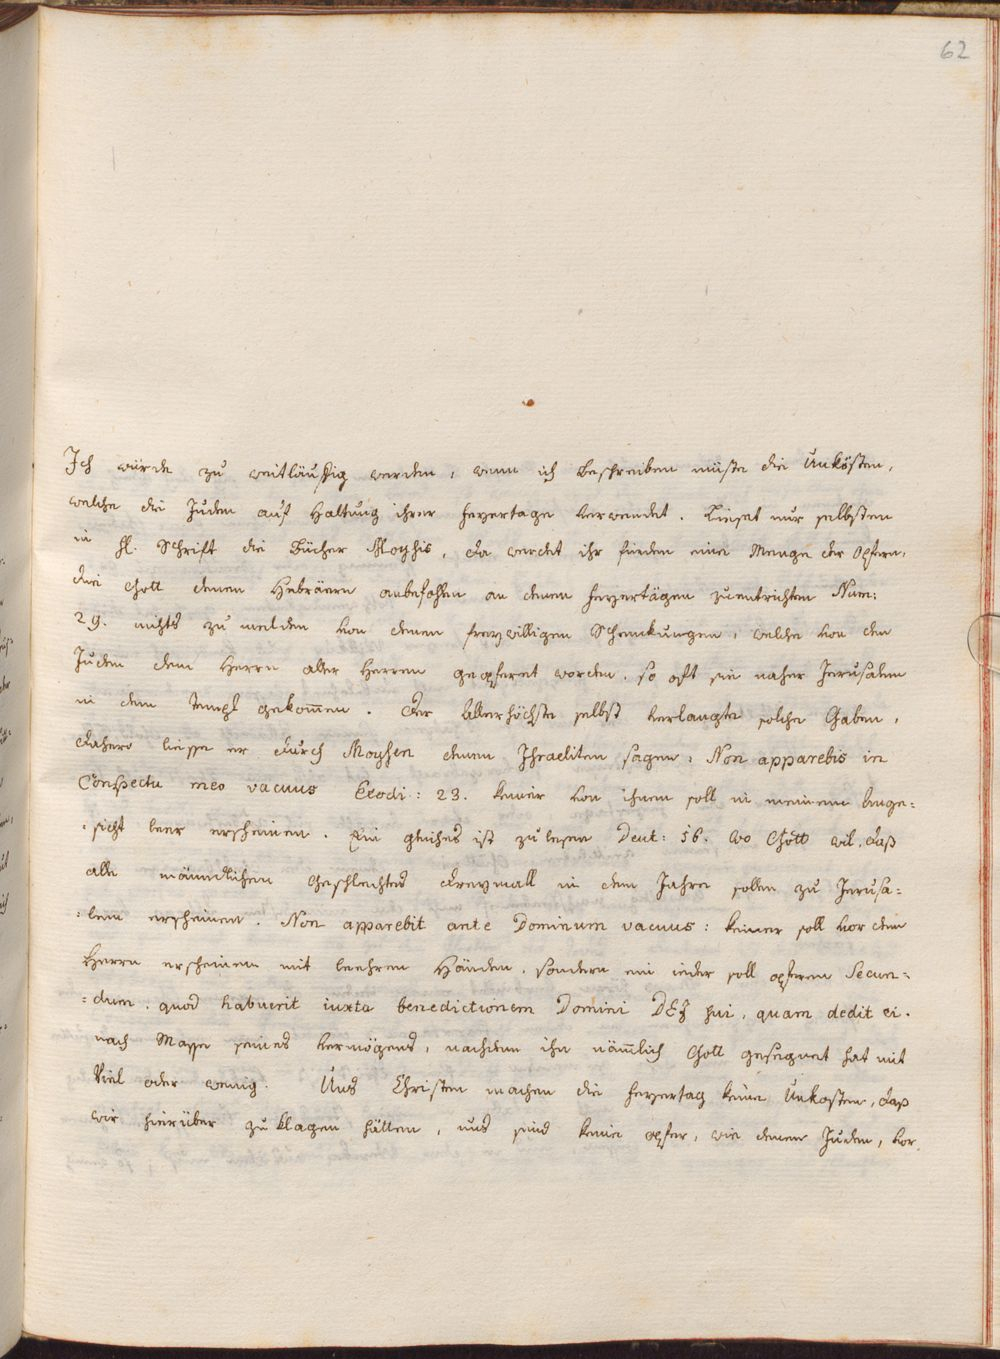 62
Ich würde zu weitläuffig werden, wenn ich beschreiben müste die Unkösten,
welche die Juden auf Haltung ihrer feyertage verwendet. Lieset nur selbsten
in Hl. Schrift die Bücher Moysis, da werdet ihr finden eine Menge der Opfern,
die Gott denen Hebräern anbefohlen an denen feyertägen zuentrichten Num:
29. nichts zu melden von denen freywilligen Schenckungen, welche von den
Juden dem Herrn aller Herren geopferet worden, so oft sie naher Jerusalem
in den Templ gekom̄en. Der Allerhöchste selbst verlangte solche Gaben,
dahero liesse er durch Moysen denen Jhraeliten sagen: Non apparebis in
Conspectu meo vacuus Exodi: 23. keiner von ihnen soll in meinem Ange=
=sicht leer erscheinen. Ein gleiches ist zu lesen Deut: 16. wo Gott wil, daß
alle männlichen Geschlechtes dreymall in dem Jahre sollen zu Jerusa=
=lem erscheinen. Non apparebit ante Dominum vacuus: keiner soll vor dem
Herrn erscheinen mit leehren Händen, sondern ein ieder soll opferen Secun=
=dum, quod habuerit iuxta benedictionem Domini DEI sui, quam dedit ei.
nach Masse seines Vermögens, nachdem ihn näm̄lich Gott geseegnet hat mit
Viel oder wenig. Uns Christen machen die feyertag keine Unkosten, daß
wir hierüber zu klagen hätten, uns sind keine opfer, wie denen Juden, vor